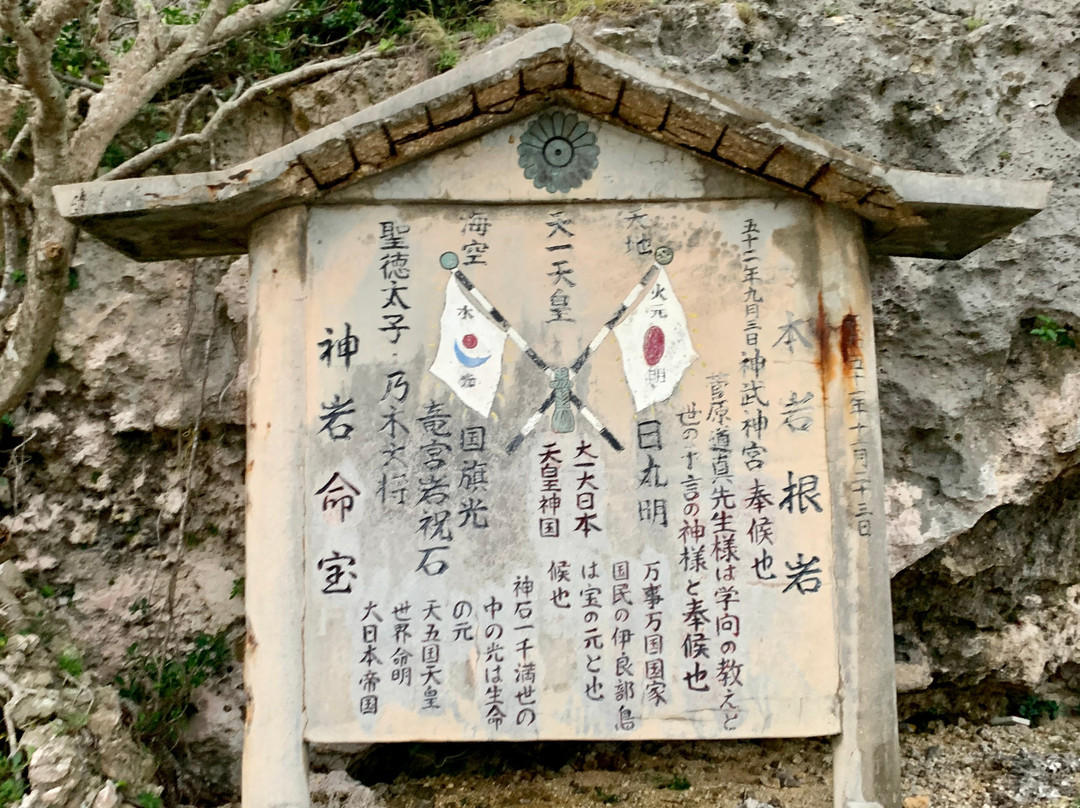 本岩根岩
五十二年九月三日神武神宮奉候也
菅原道真先生様は学向の教えと
世の十言の神様と奉候也
天地
火元
明
日丸明
万事万国国家
国民の伊良部島
は宝の元と也
候也
天一天皇
大一大日本
天皇神国
海空
水
国旗光
竜宮岩祝石
神石一千満世の
中の光は生命
の元
天五国天皇
世界命明
大日本帝国
聖徳太子・乃木大将
神岩命宝